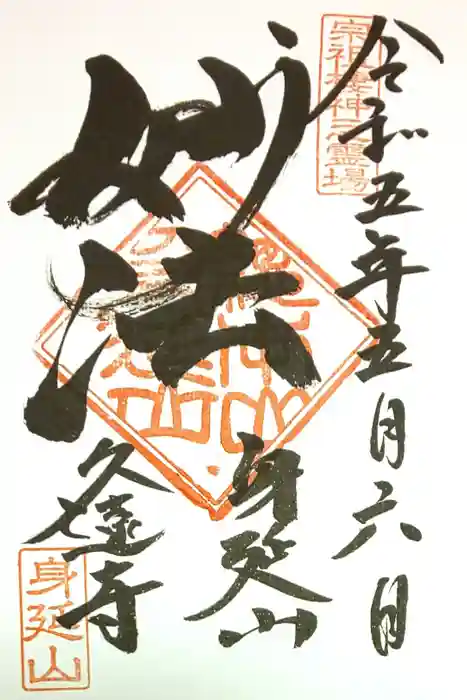 宗祖棲神之霊場
令和五年五月六日
妙法
身延山
久遠寺
身延山